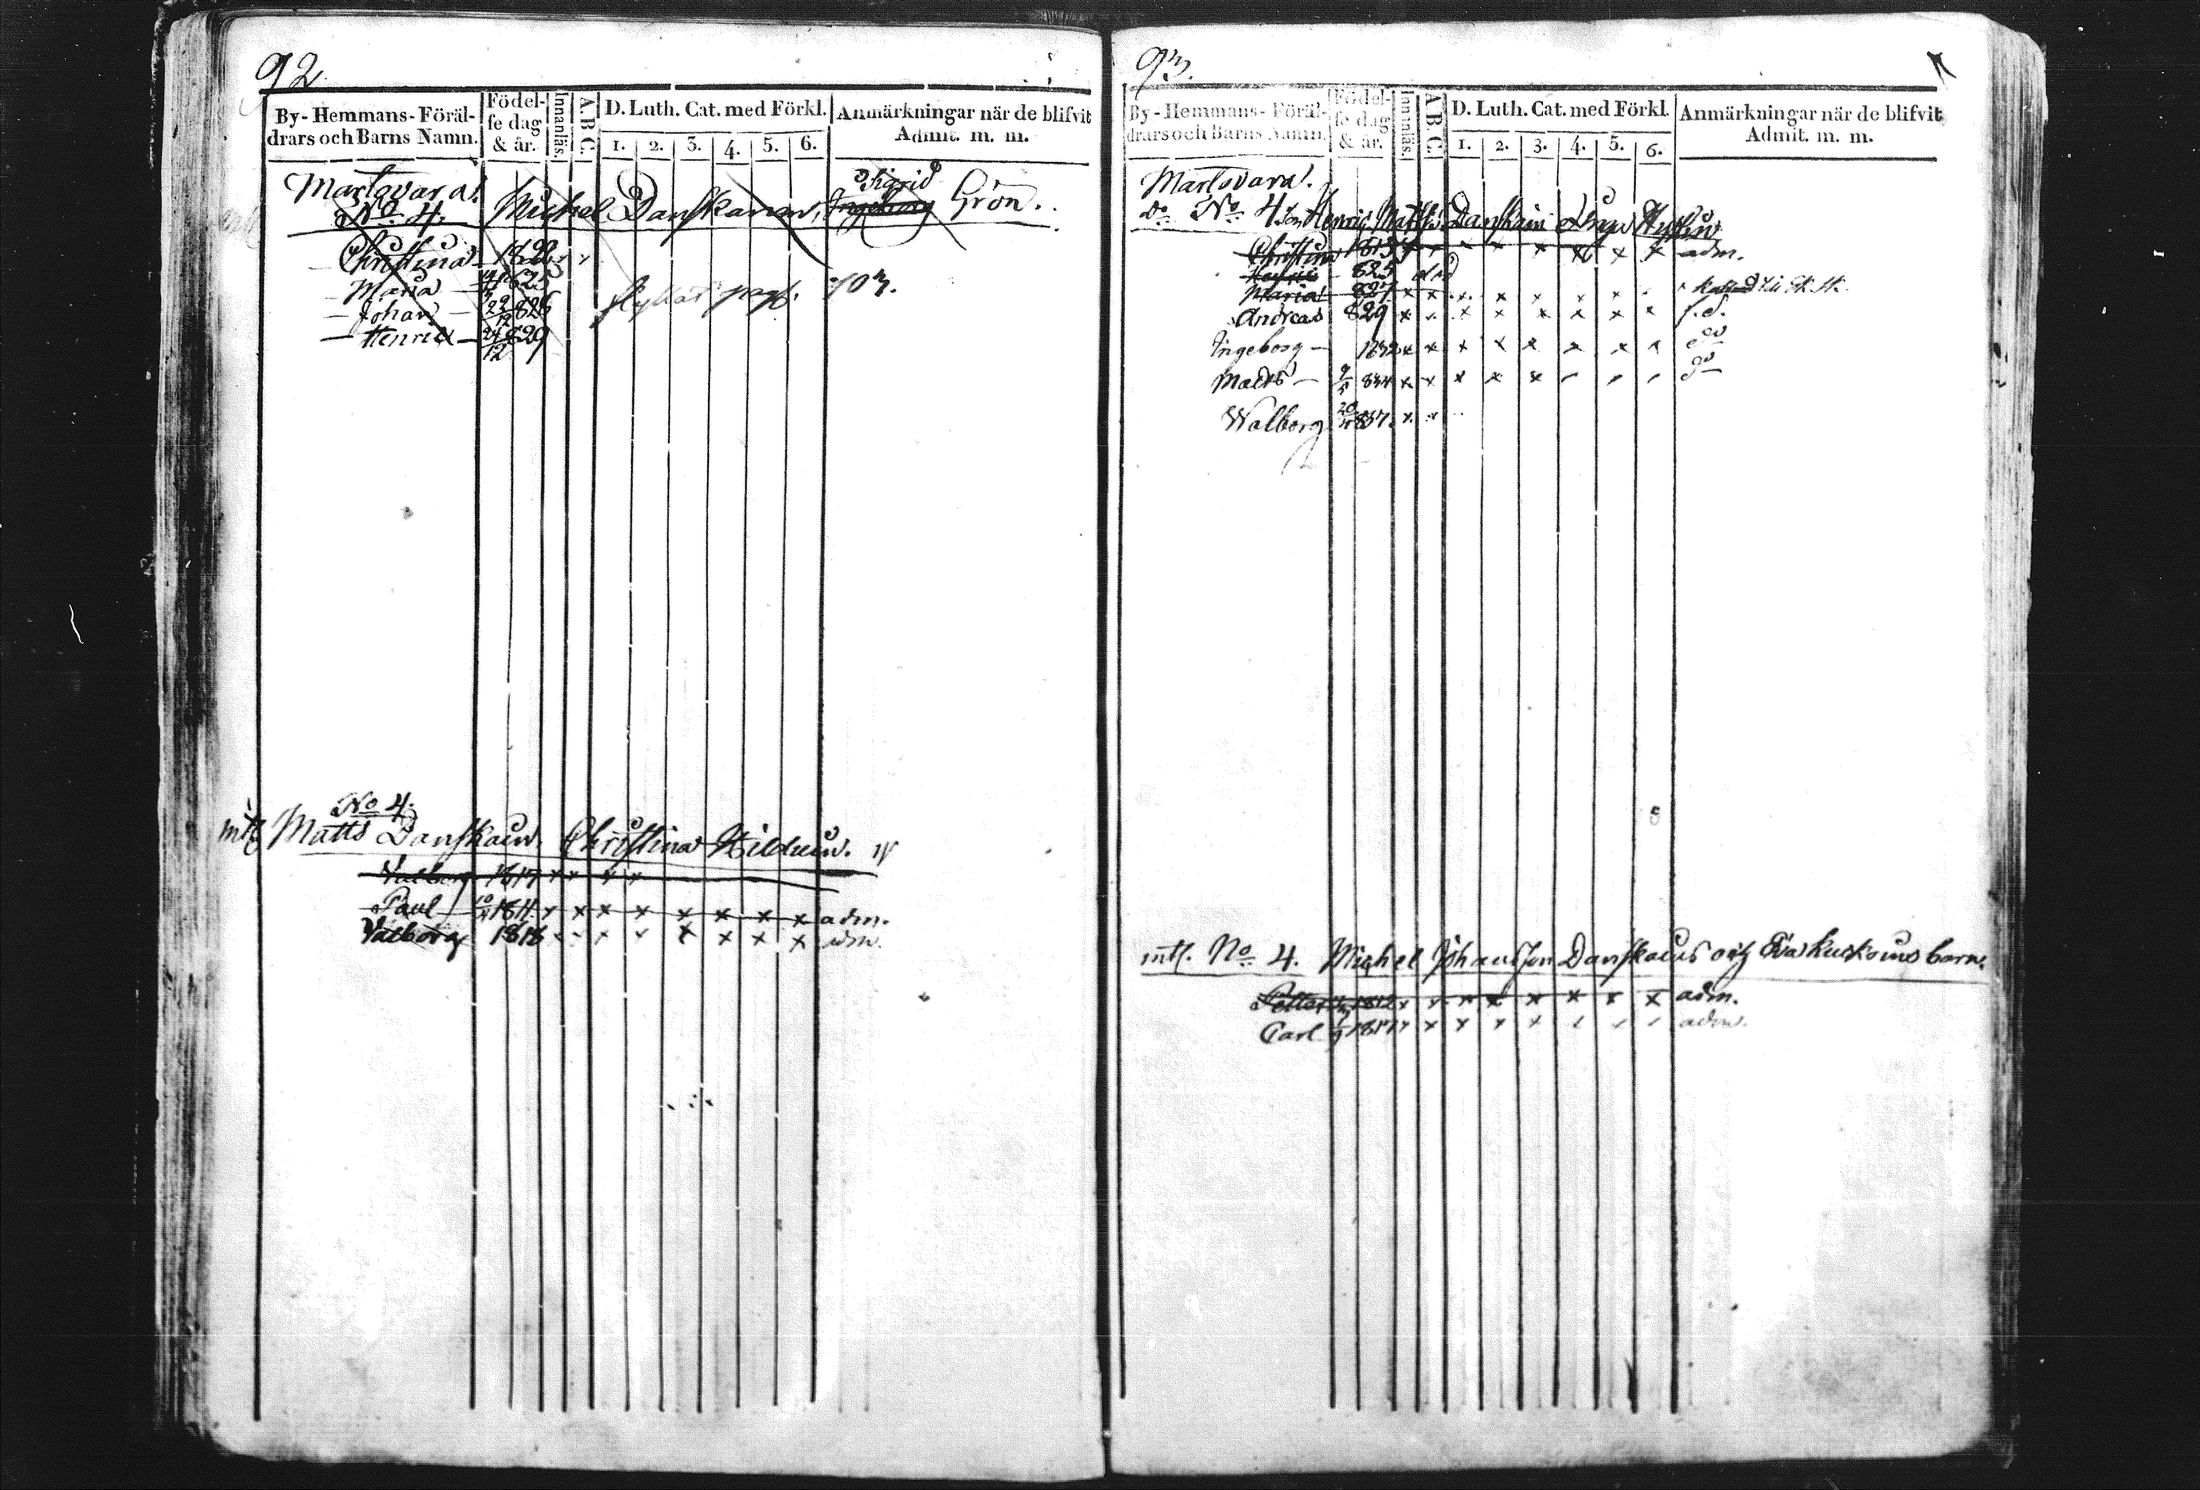 92.
By-Hemmans-Föräl-
drars och Barns Namn.
Födel-
se dag
& år.
Innanläs.
A.B.C.
D. Luth. Cat. med Förkl.
1. 2. 3. 4. 5. 6.
Anmärkningar när de blifvit
Admit. m. m.
Martovara.
Sigrid
No 4. Michel Danskanen, Ingeborg Grön.
Christina 1822
Maria 1825
Johan 22/12 826
Henric 24/12 829
flyttat pag. 103.
No 4.
Matts Danskain, Christina
Valborg 1817 x x x x
Paul 1811. x x x x x x x x adm.
Valborg 1818 x x x x adm.
93.
By-Hemmans-Föräl-
drars och Barns Namn.
Födel-
se dag
& år.
Innanläs.
A.B.C.
D. Luth. Cat. med Förkl.
1. 2. 3. 4. 5. 6.
Anmärkningar när de blifvit
Admit. m. m.
Martovara.
do No 4 Henric Matts. Danskain
Christina 1813 x x x x adm.
Henric 825 död
Maria 827 x x x x x x x
Andreas 829 x x x x x x x f.d.
Ingeborg 1832 x x x x x x x x do
Matts 834 x x x x x do
Walborg 837. x x
mtl. No 4. Michel Johansson Danskains och Eva Kuskoins barn.
Petter 1812 x x x x x x x x adm.
Carl 1817 x x x x x adm.